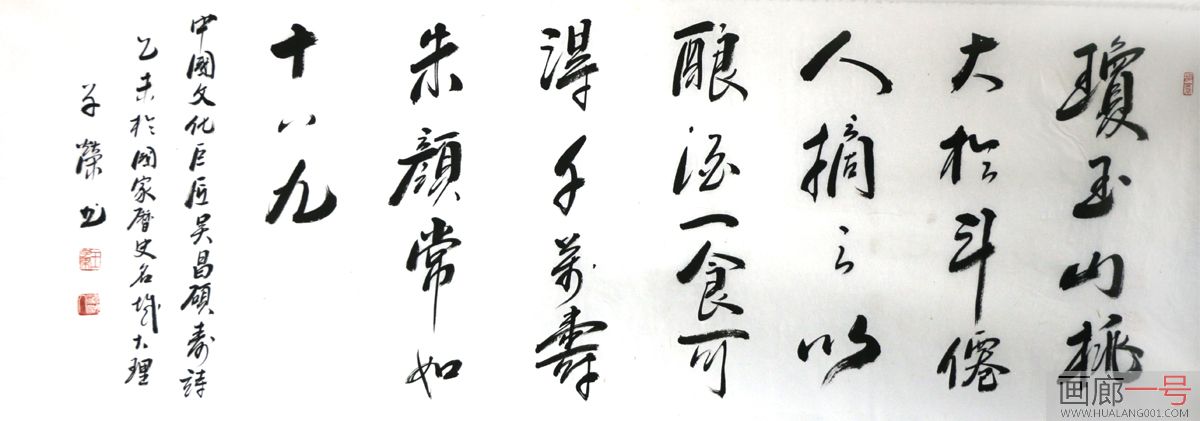 瓊玉山桃
大於斗僊
人摘之以
酿酒一食可
得千萬壽
朱顏常如
十八九
中國文化巨匠吴昌碩壽詩
乙未於國家曆史名城大理
榮书
画廊一号
WWW.HUALANG001.COM